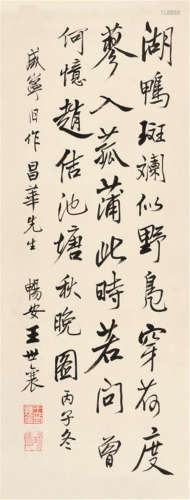 湖鴨斑斕似野鳧穿荷度
蓼入菰蒲此時若問曾
何憶趙佶池塘秋晚圖丙子冬
咸寧旧作昌華先生
暢安王世襄